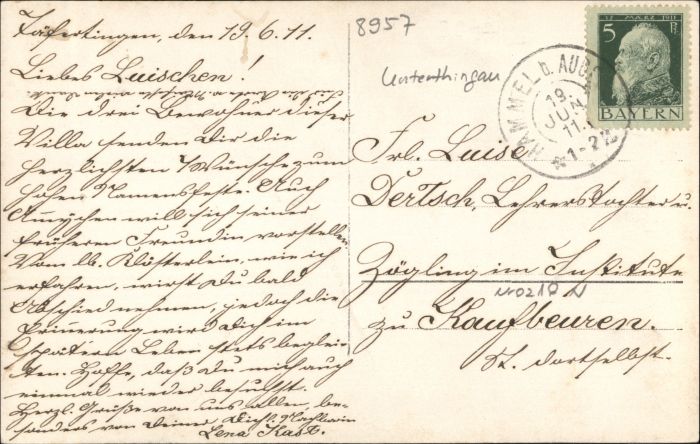 Täfertingen, den 19.6.11.
Liebes Luischen!
Die drei Bewohner dieser
Villa senden Dir die
herzlichsten Wünsche zum
hohen Namensfeste. Auch
will sich seiner
früheren Freundin vorstellen.
Vom lb. Klösterlein, wie ich
erfahren, wirst Du bald
Abschied nehmen, jedoch die
Erinnerung wird Dich im
spätern Leben stets beglei-
ten. Hoffe, daß Du mich auch
einmal wieder besuchst.
Herzl. Grüße von uns allen, be-
sonders von Deiner Dichl.
Lena Kast.
8957
Unterthingau
17 MÄRZ 1911
5 Pf
BAYERN
HAMMEL b. AUG
19.
JUN
11.
1-2
Frl. Luise
Dertsch, Lehrerstochter u.
Zögling im Institute
zu Kaufbeuren.
St. dortselbst.